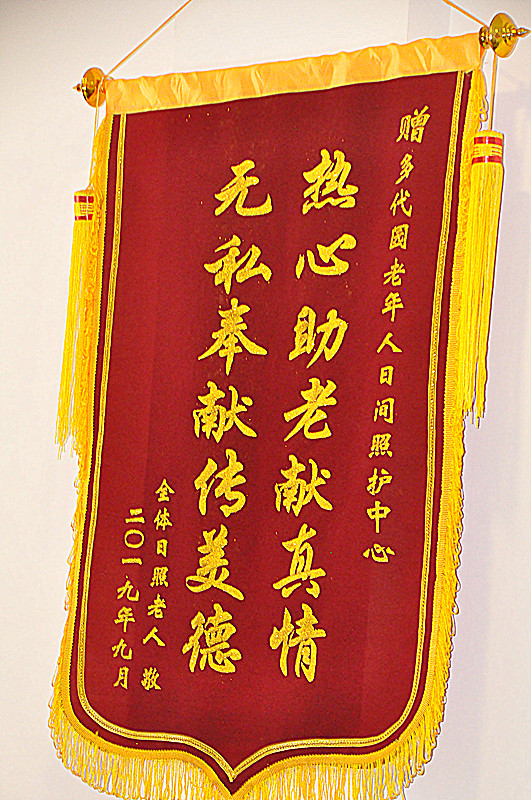 赠多代國老年人日间照护中心
热心助老献真情
无私奉献传美德
全体日照老人 敬
二〇一九年九月